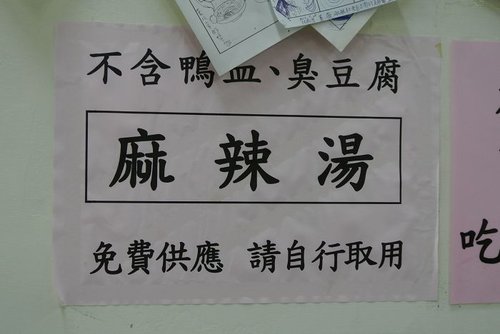 不含鴨血、臭豆腐
麻辣湯
免費供應 請自行取用
吃